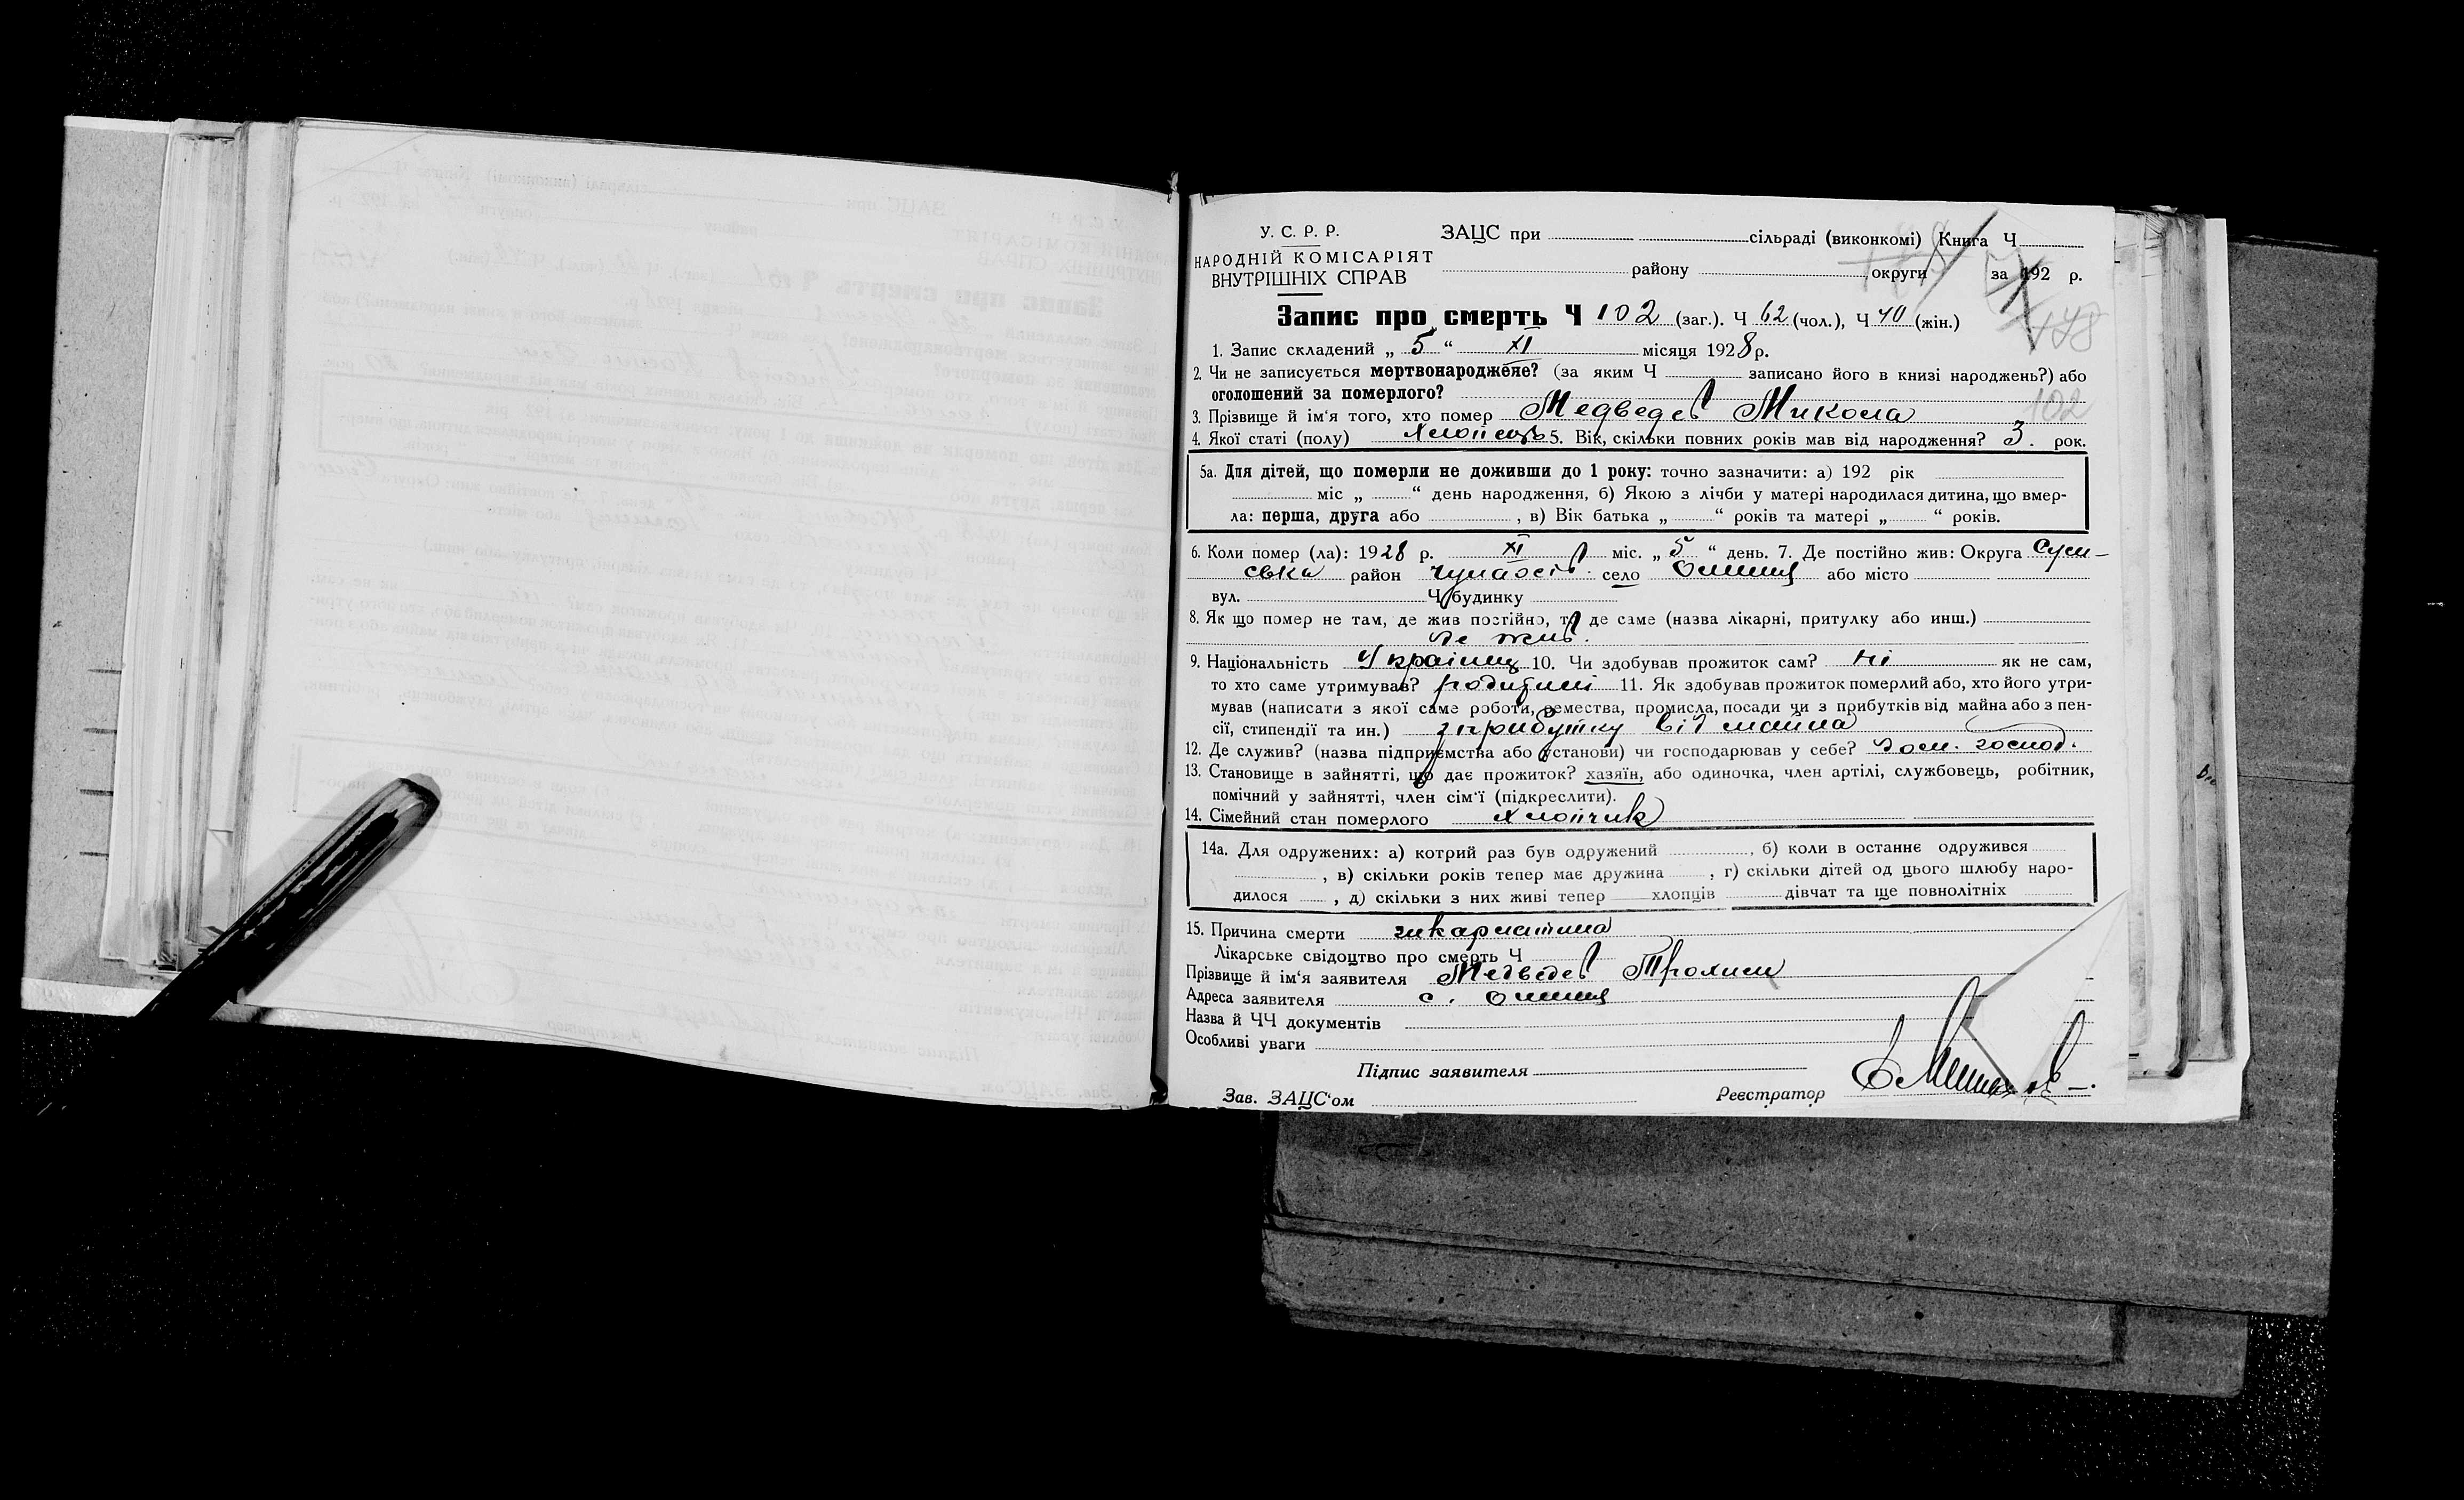 У. С. Р. Р.
НАРОДНІЙ КОМІСАРІЯТ
ВНУТРІШНІХ СПРАВ
ЗАЦС при сільраді (виконкомі) Книга Ч
району округи за 192 р.
148
Запис про смерть Ч 102 (заг.). Ч 62 (чол.), Ч 40 (жін.)
1. Запис складений „ 5 “ XI місяця 1928 р.
2. Чи не записується мертвонароджене? (за яким Ч записано його в книзі народжень?) або
оголошений за померлого?
102
3. Прізвище й ім'я того, хто помер Медведєв Микола
4. Якої статі (полу) хлопець 5. Вік, скільки повних років мав від народження? 3. рок.
5а. Для дітей, що померли не доживши до 1 року: точно зазначити: а) 192 рік
міс „ “ день народження, б) Якою з лічби у матері народилася дитина, що вмер-
ла: перша, друга або , в) Вік батька „ “ років та матері „ “ років.
6. Коли помер (ла): 1928 р. XI міс. „ 5 “ день. 7. Де постійно жив: Округа Сум-
ська район село або місто
вул. Ч будинку
8. Як що помер не там, де жив постійно, то де саме (назва лікарні, притулку або инш.)
де жив.
9. Національність Українец 10. Чи здобував прожиток сам? Ні як не сам,
то хто саме утримував? родители 11. Як здобував прожиток померлий або, хто його утри-
мував (написати з якої саме роботи, ремества, промисла, посади чи з прибутків від майна або з пен-
сії, стипендії та ин.) з прибутку від майна
12. Де служив? (назва підприємства або установи) чи господарював у себе? дом. господ.
13. Становище в зайнятті, що дає прожиток? хазяїн, або одиночка, член артілі, службовець, робітник,
помічний у зайнятті, член сім'ї (підкреслити).
14. Сімейний стан померлого хлопчик
14а. Для одружених: а) котрий раз був одружений , б) коли в останнє одружився
, в) скільки років тепер має дружина , г) скільки дітей од цього шлюбу наро-
дилося , д) скільки з них живі тепер хлопців дівчат та ще повнолітніх
15. Причина смерти
Лікарське свідоцтво про смерть Ч
Прізвище й ім'я заявителя Медведєв Трохим
Адреса заявителя с.
Назва й ЧЧ документів
Особливі уваги
Підпис заявителя
Зав. ЗАЦС'ом Реєстратор